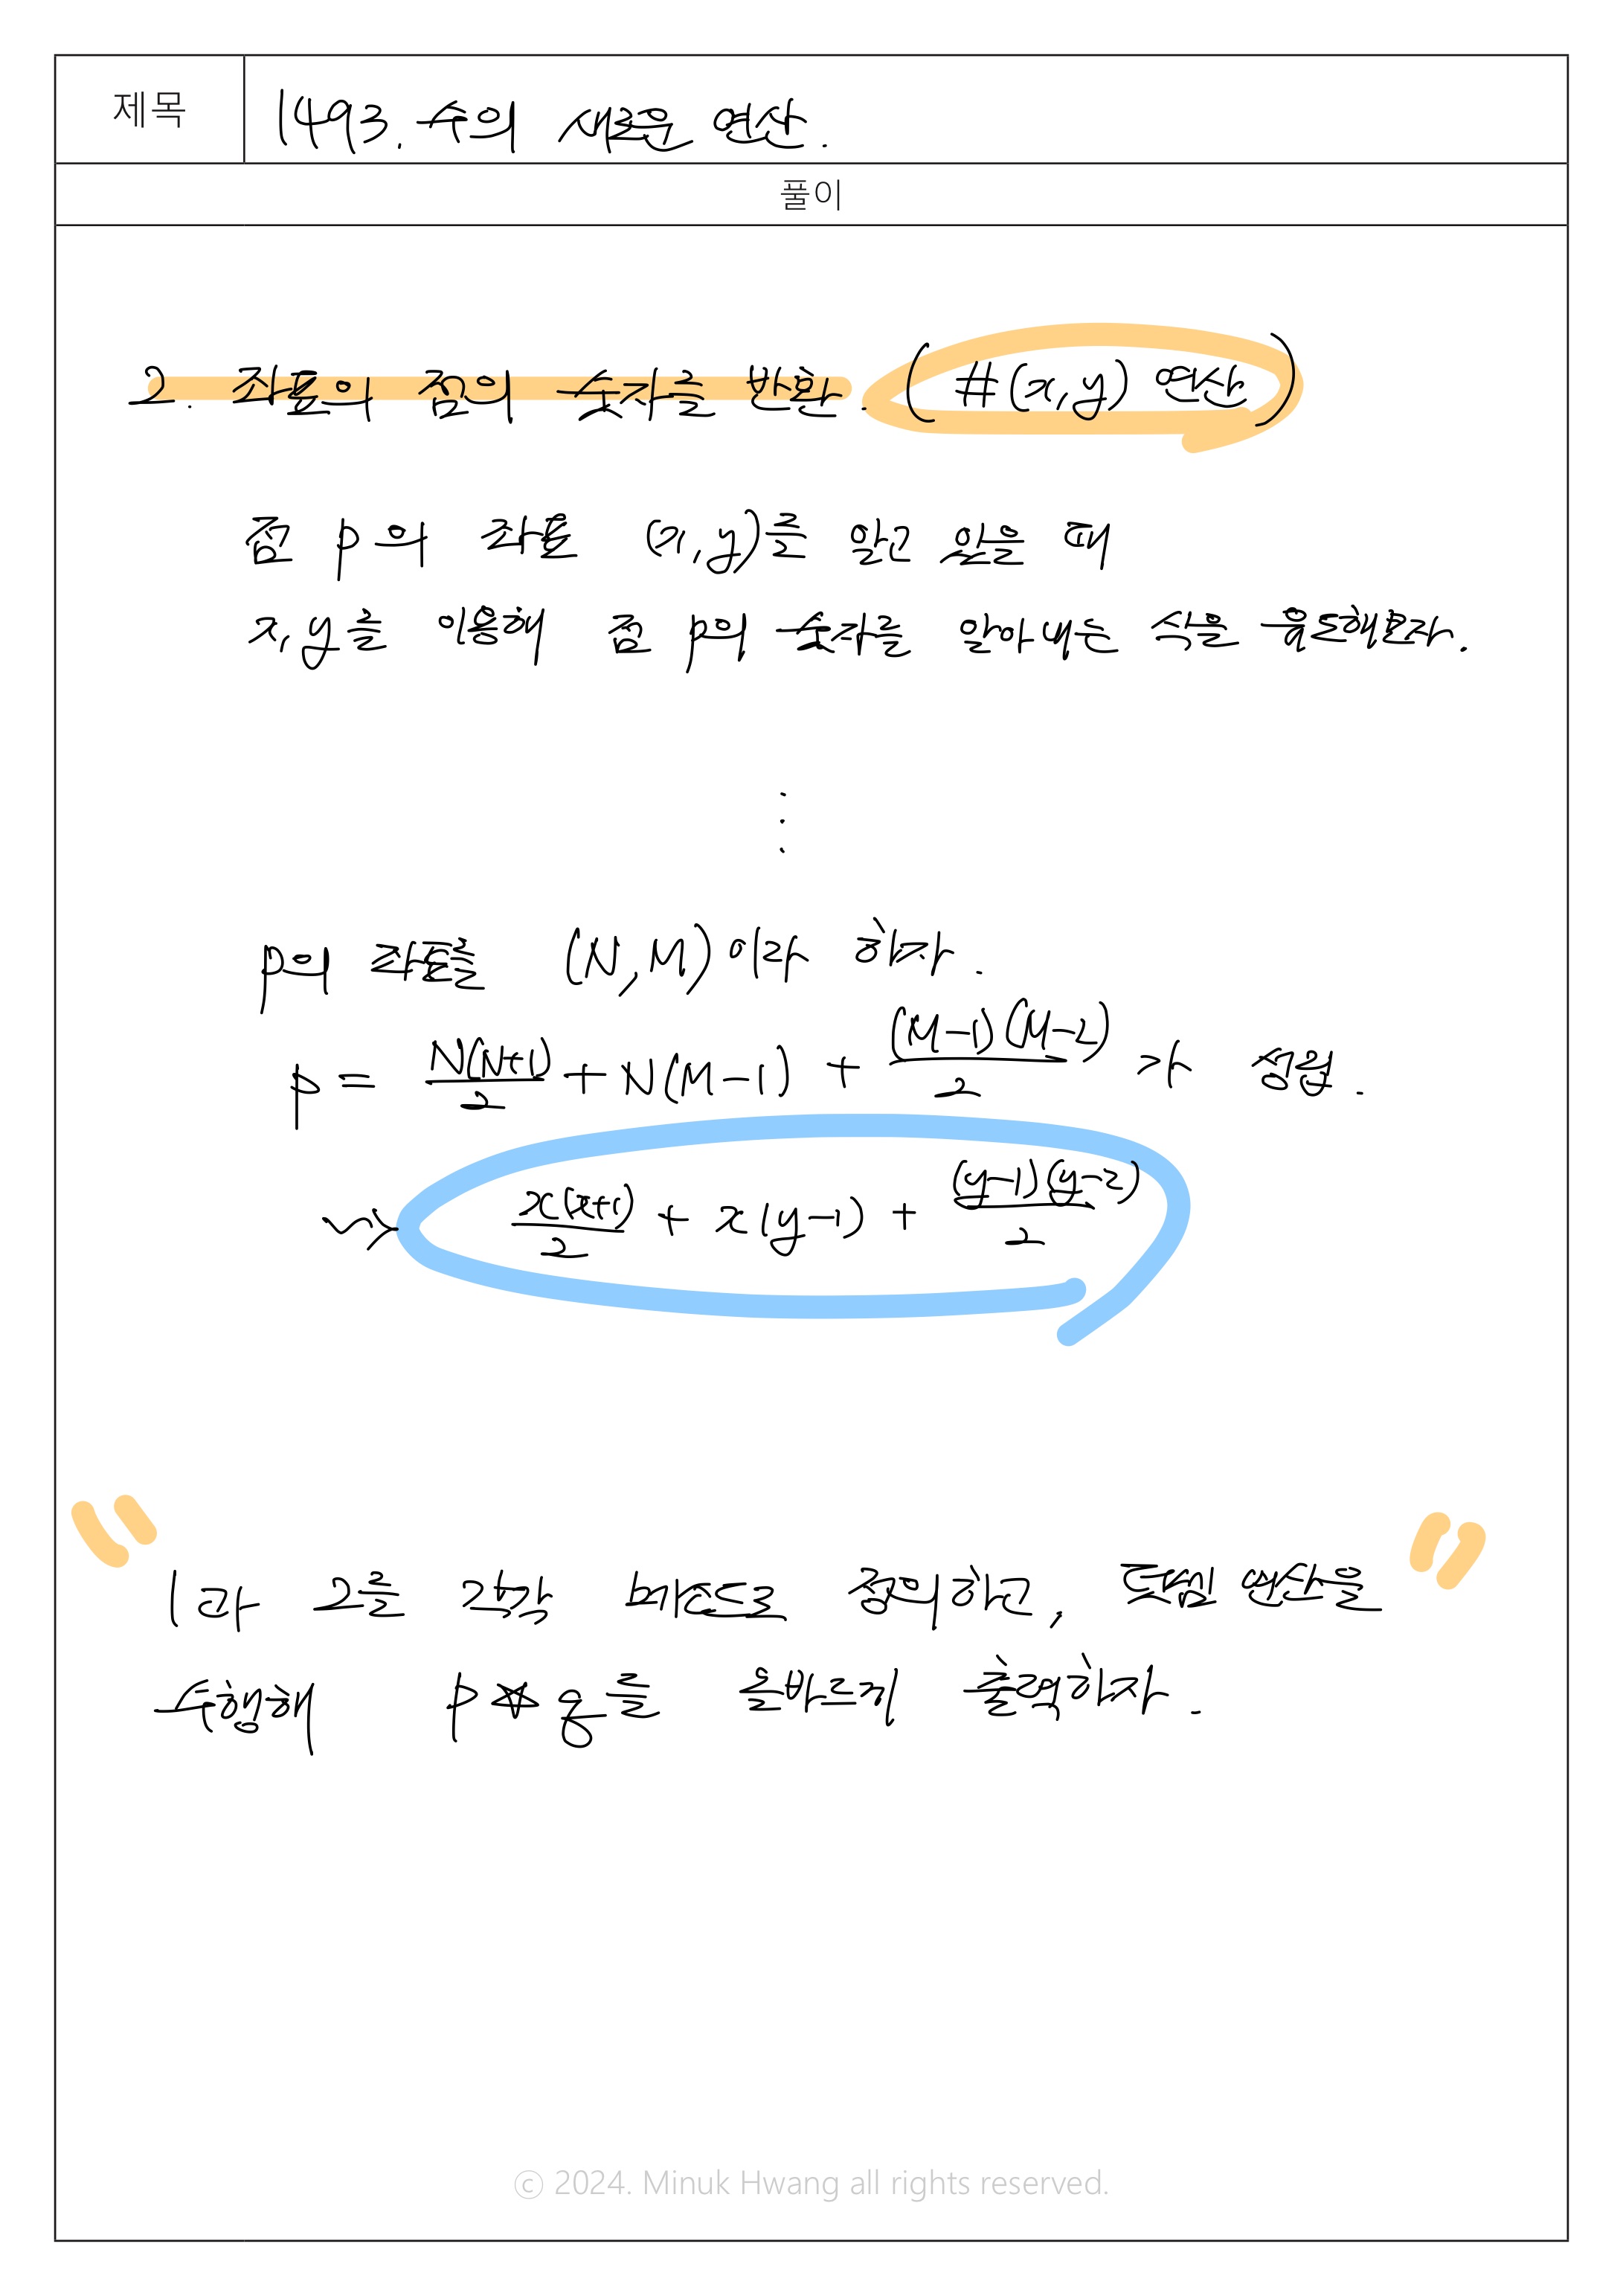 제목
1493. 수의 새로운 연산.
풀이
2. 좌표의 점의 숫자를 반환. (#(x,y) 연산)
점 p의 좌표 (x,y)를 알고 있을 때
x,y를 이용해 점 p의 숫자를 알아내는 식을 유도해보자.
⋮
p의 좌표를 (N,M)이라 하자.
p = N(N+1)/2 + N(M-1) + (M-1)(M-2)/2 가 성립.
~> x(x+1)/2 + x(y-1) + (y-1)(y-2)/2
"1과 2를 각각 메소드로 정의하고, 덧셈 연산을"
수행해 p☆q를 올바르게 출력하자.
© 2024. Minuk Hwang all rights reserved.